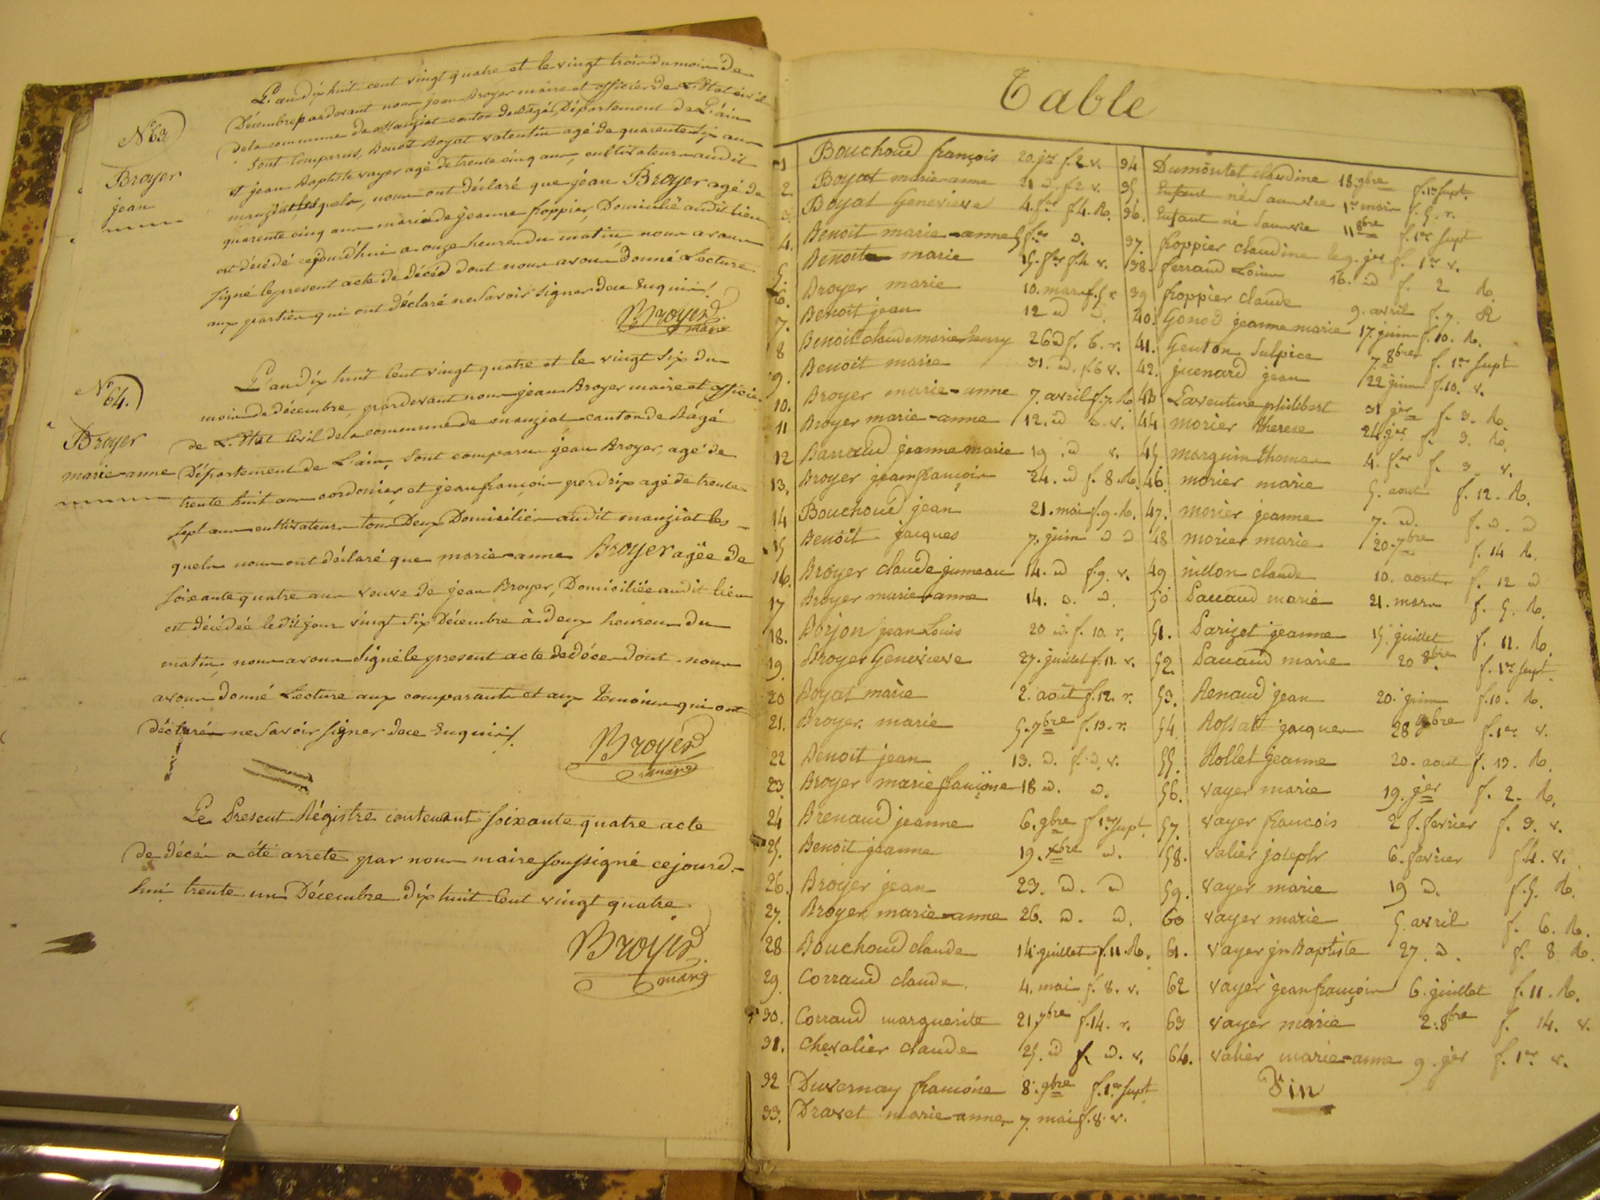 N° 63
Broyer
jean
L'an dix huit cent vingt quatre et le vingt trois du mois de
Décembre pardevant nous jean Broyer maire et officier de L'Etat civil
de la commune de Manziat canton de Bagé, Département de L'ain
Sont Comparus, Benoit Boyat valentin agé de quarente six ans
et jean Baptiste vayer agé de trente cinq ans, cultivateurs audit
manziat lesquels, nous ont déclaré que jean Broyer agé de
quarente cinq ans marié de jeanne froppier, Domicilié audit lieu
est décédé cejourd'hui a onze heures du matin nous avons
signé le present acte de décès dont nous avons Donné Lecture
aux parties qui ont déclaré ne Savoir signer de ce Enquis /.
Broyer
maire
N° 64.
Broyer
marie-anne
L'an dix huit Cent vingt quatre et le vingt six du
mois de décembre, pardevant nous jean Broyer maire et officier
de L'Etat Civil de la commune de manziat canton de Bagé
Département de L'ain, Sont comparus jean Broyer, agé de
trente huit ans cordonier et jean françois perdrix agé de trente
sept ans cultivateurs tous Deux Domiciliés audit manziat les-
quels nous ont déclaré que marie-anne Broyer agée de
soixante quatre ans veuve de jean Broyer, Domiciliée audit lieu
est décédée ledit jour vingt six Décembre à deux heures du
matin, nous avons Signé le present acte de décès dont nous
avons donné Lecture aux comparants et aux témoins qui ont
déclaré ne Savoir signer de ce Enquis /.
Broyer
maire
Le Present Régistre contenant soixante quatre acte
de décès a été arrete par nous maire soussigné cejourd-
hui trente un Décembre dix huit Cent vingt quatre
Broyer
maire
Table
1 Bouchoud françois 20 jer f. 2 v.
2. Boyat marie anne 31 d. f. 2 v.
3. Boyat Genevieve 4. fer f. 4. R.
4. Benoit marie-anne 5 fer d.
5. Benoite marie 15. fer f. 4 v.
6. Broyer marie 10. mars f. 5 r
7. Benoit jean 12 d d.
8 Benoit claude marie henry 26 d f. 6. r.
9. Benoit marie 31. d. f. 6 v.
10. Broyer marie-anne 7. avril f. 7. R
11 Broyer marie-anne 12. d d. v.
12 Banaud jeanne marie 19. d v.
13. Broyer jean françois 24. d f. 8. R.
14 Bouchoud jean 21. mai f. 9. R.
15 Benoit jacques 7. juin d d
16. Broyer claude jumeau 14. d f. 9. v.
17 Broyer marie-anne 14. d. d.
18. Boyon jean Louis 20 d. f. 10. r.
19. Broyer Genevieve 27. juillet f. 11. v.
20 Boyat marie 2. août f. 12. r.
21. Broyer marie 5. 7bre f. 13. r.
22 Benoit jean 13. d. f. d. v.
23. Broyer marie françoise 18 d. d.
24 Brenaud jeanne 6. 9bre f. 1er supt
25. Benoit jeanne 19. xbre d.
26. Broyer jean 23. d. d
27. Broyer marie-anne 26. d. d.
28 Bouchoud claude 14 juillet f. 11. R.
29. Corraud claude 4. mai f. 8. v.
30. Corraud marguerite 21 9bre f. 14. r.
31. Chevalier claude 25. d f. d. v.
32 Duvernay francoise 8. 9bre f. 1er supt
33. Dravet marie anne 7. mai f. 8. v.
34 Dumoutet claudine 18. 9bre f. 1er supt.
35. Enfant né Sans vie 1er mars f. 5. r.
36. Enfant né Sans vie 11 8bre f. 1er supt
37. froppier claudine le 9. jer f. 1er v.
38. ferraud Louis 16. d f. 2 R.
39 froppier claude 9. avril f. 7. R
40. Gonod jeanne marie 17. juin f. 10. R.
41. Genton Sulpice 7. 8bre f. 1er supt
42. guenard jean 22 juin f. 10. v.
43 Laventure philibert 31 jer f. 3. R.
44 morier therese 24 jer f. 3. R.
45 marguin thomas 4. fer f. 3. v.
46. morier marie 5. aout f. 12. R.
47. morier jeanne 7. d. f. d. d
48 morier marie 20. 7bre f. 14 R.
49 nillon claude 10. aout f. 12 d
50 Pauaud marie 21. mars f. 5. R.
51. Parizot jeanne 15. juillet f. 11. R.
52. Pauaud marie 20 8bre f. 1er supt
53. Renaud jean 20. juin f. 10. R.
54 Rossatt jacques 28 9bre f. 1er v.
55. Rollet jeanne 20. aout f. 13. R.
56. vayer marie 19. jer f. 2. R.
57. vayer francois 2 f. ferier f. 3. v.
58. valier joseph 6. fevrier f. 4. v.
59. vayer marie 19 d. f. 5. R.
60 vayer marie 5 avril f. 6. R.
61. vayer jn Baptiste 27. d. f. 8 R.
62 vayer jean françois 6. juillet f. 11. R.
63 vayer marie 2. 8bre f. 14. v.
64. valier marie-anne 9. jer f. 1er v.
Fin